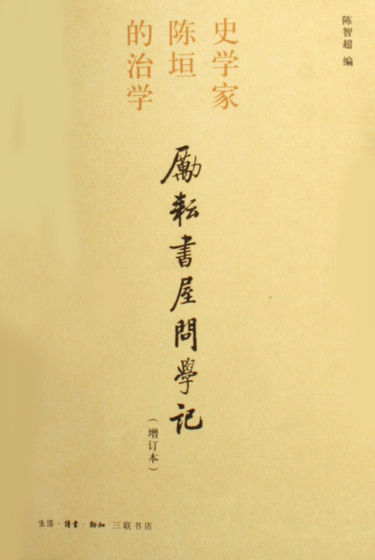 史学家
陈垣
的治学
陈智超 编
励耘書屋問學记
(增订本)
生活·讀書·新知 三联书店